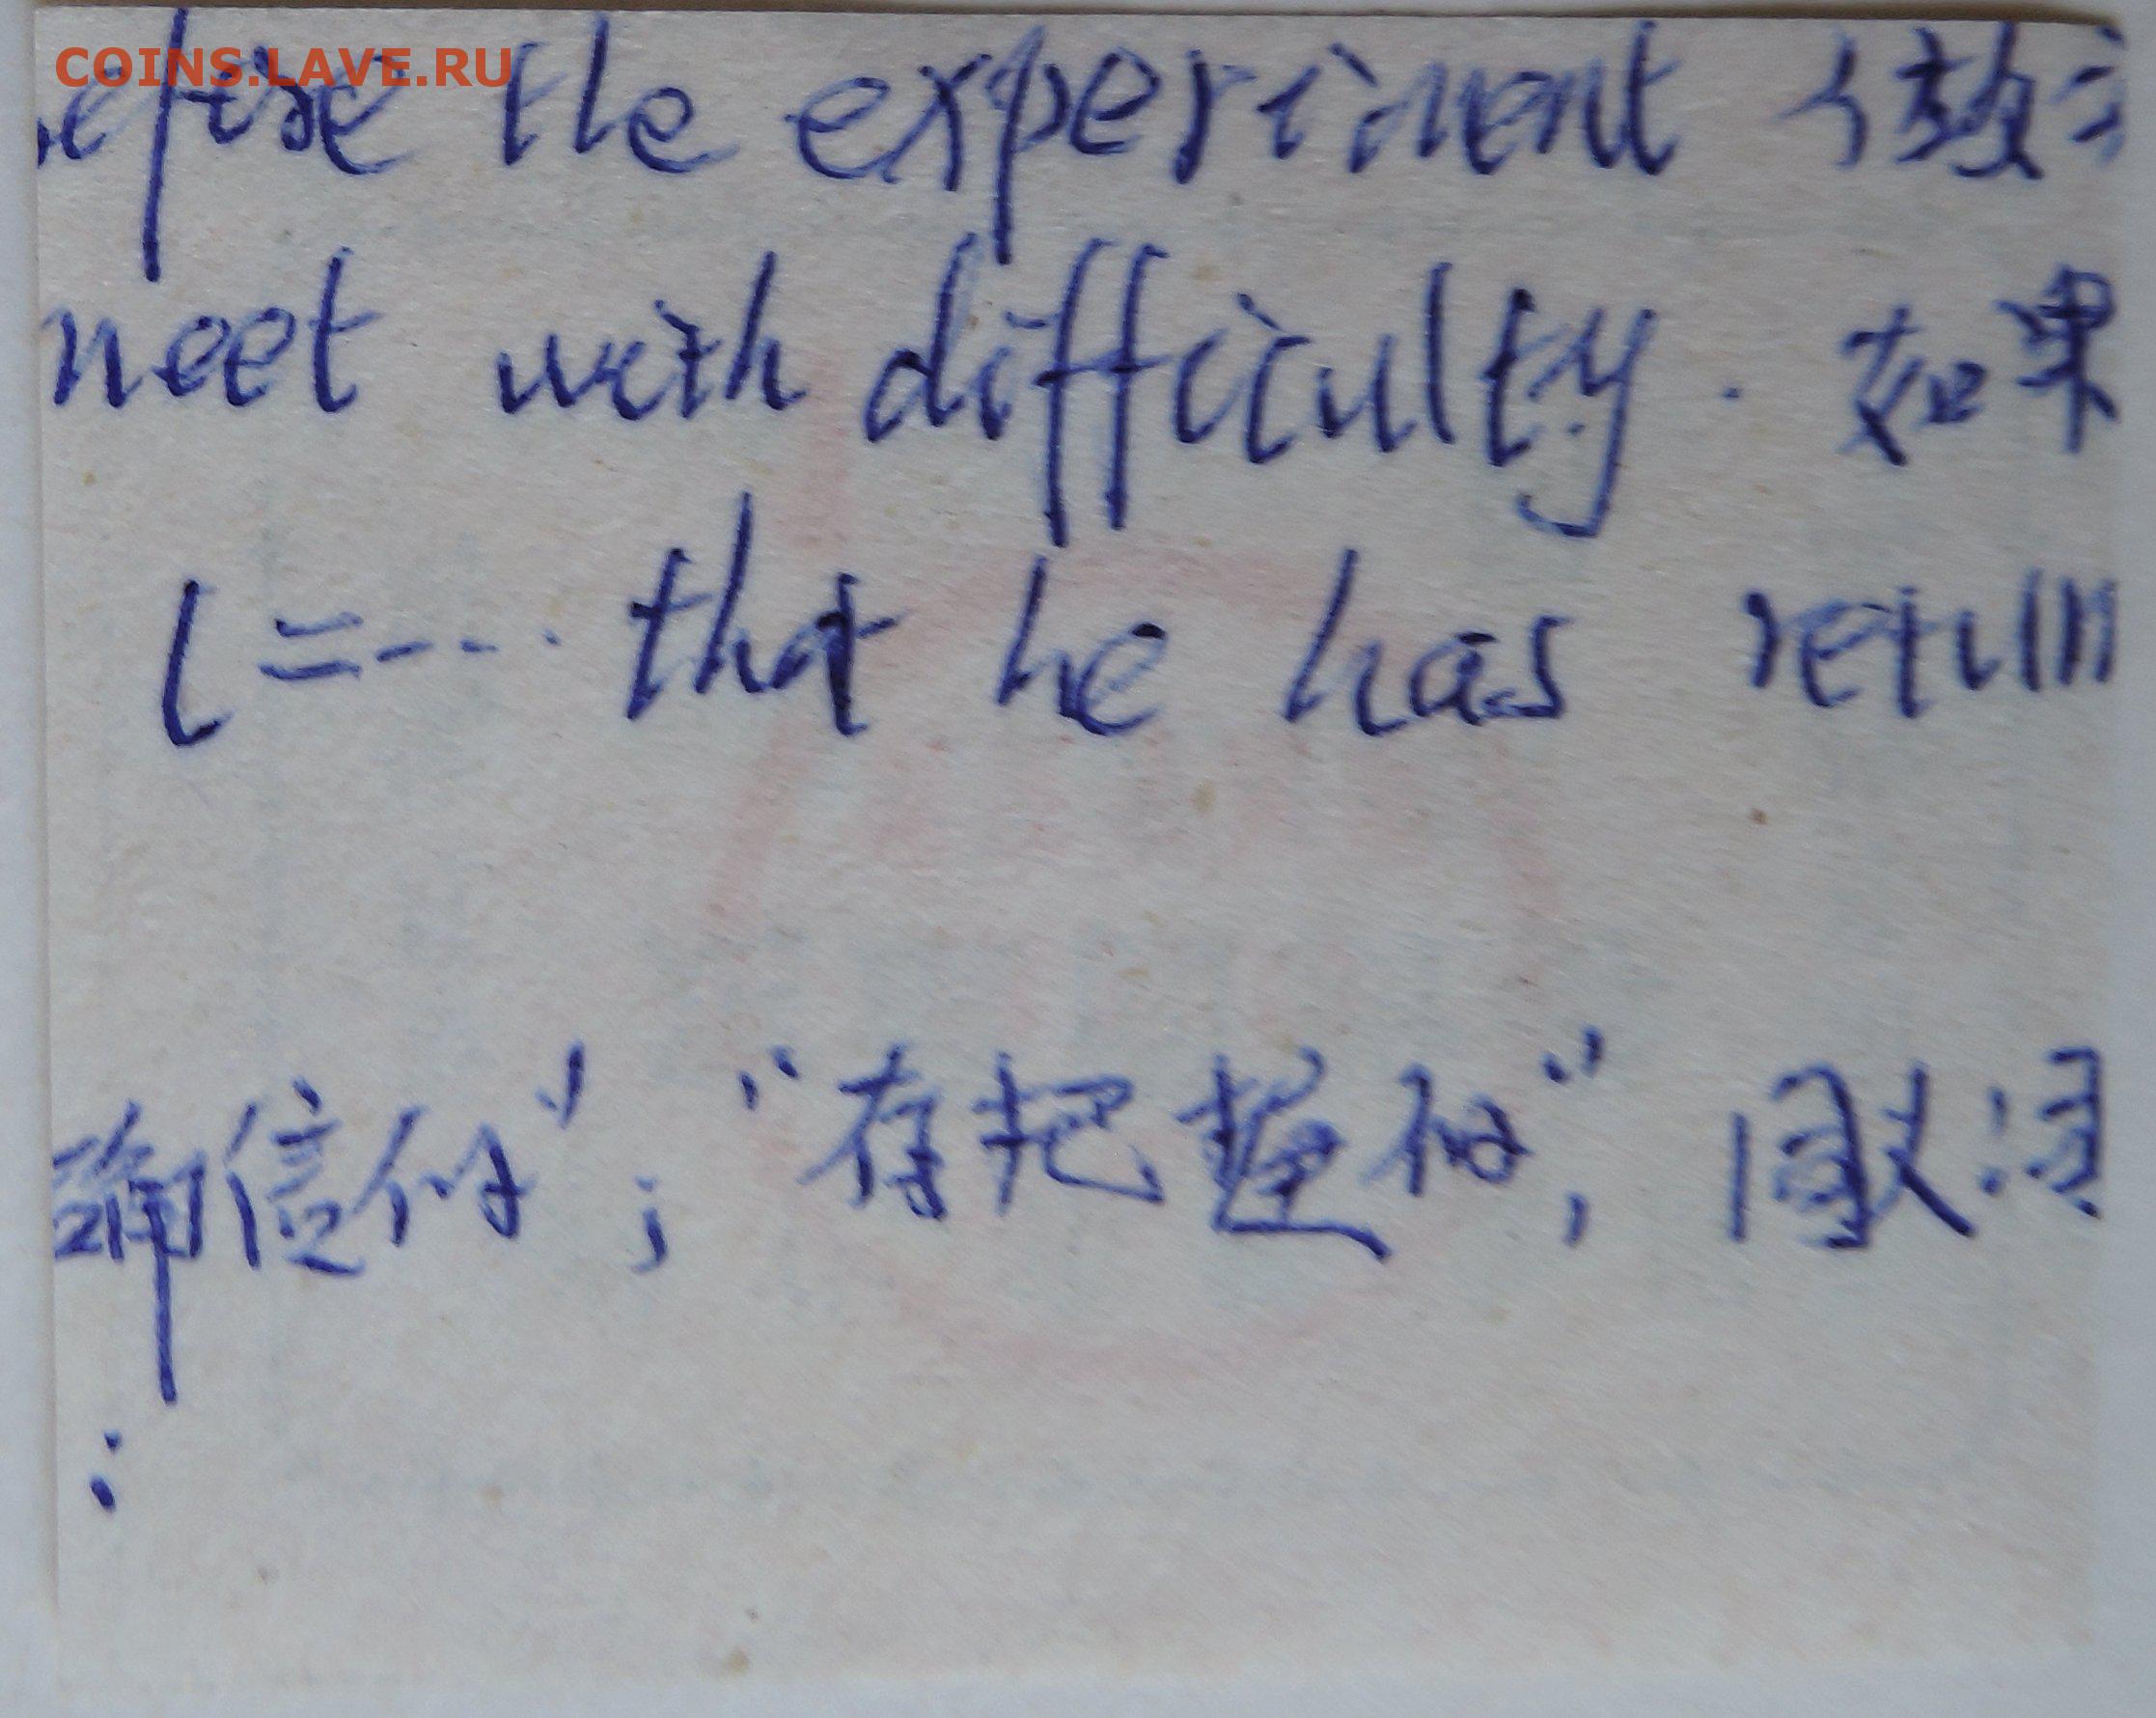 COINS.LAVE.RU
efore the experiment 做
meet with difficulty. 如果
l =--·· that he has return
确信的”; “有把握的”,
: